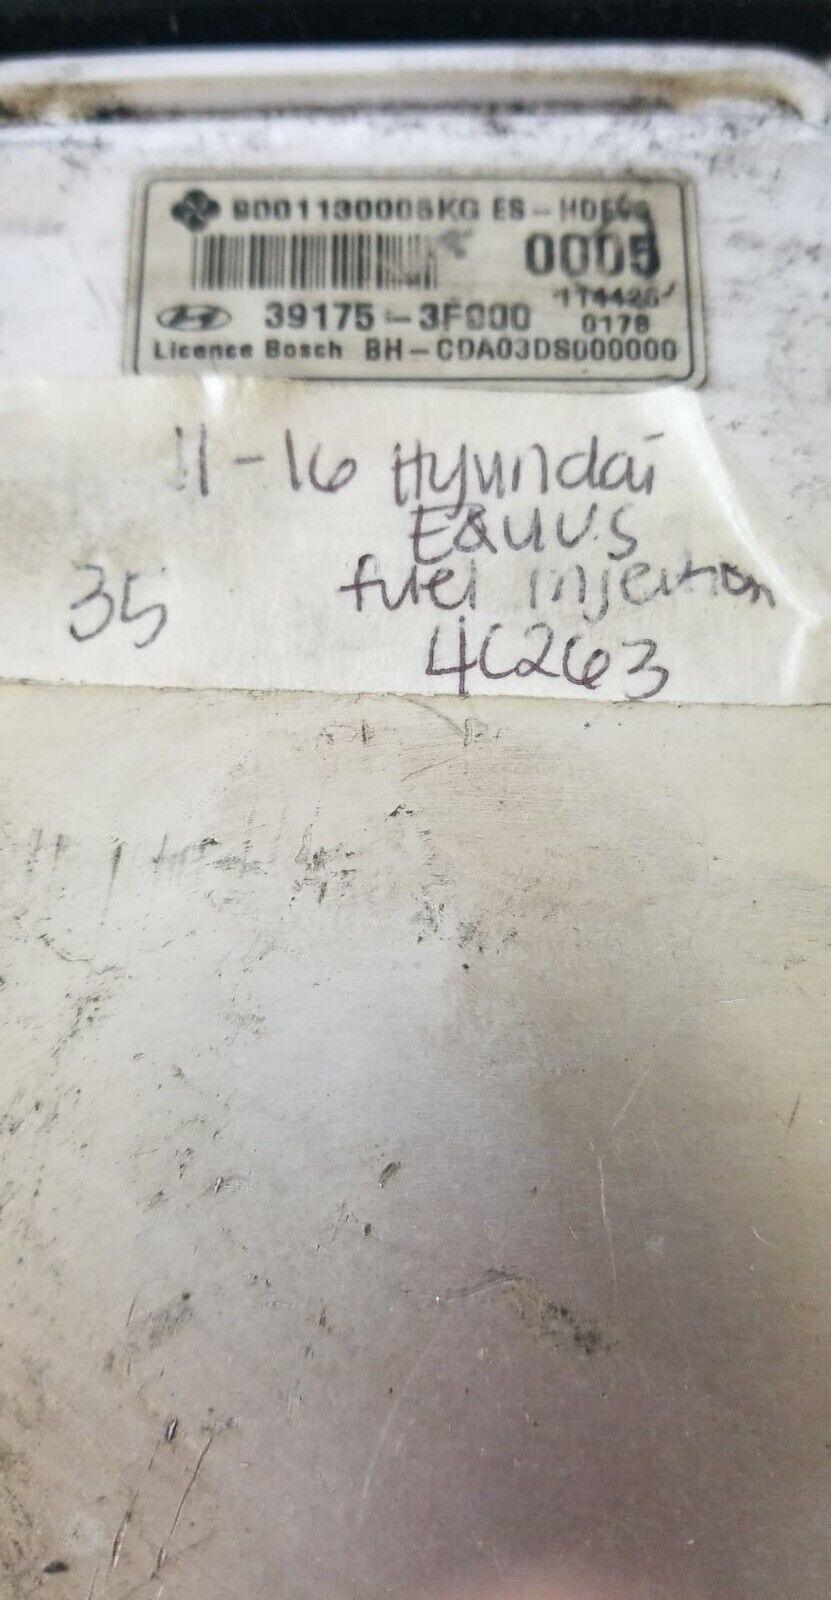 9001130005KG ES-
0005
39175-3F000
0178
Licence Bosch BH-CDA03DS000000
11-16 Hyundai
EQUUS
35 fuel injection
4C263